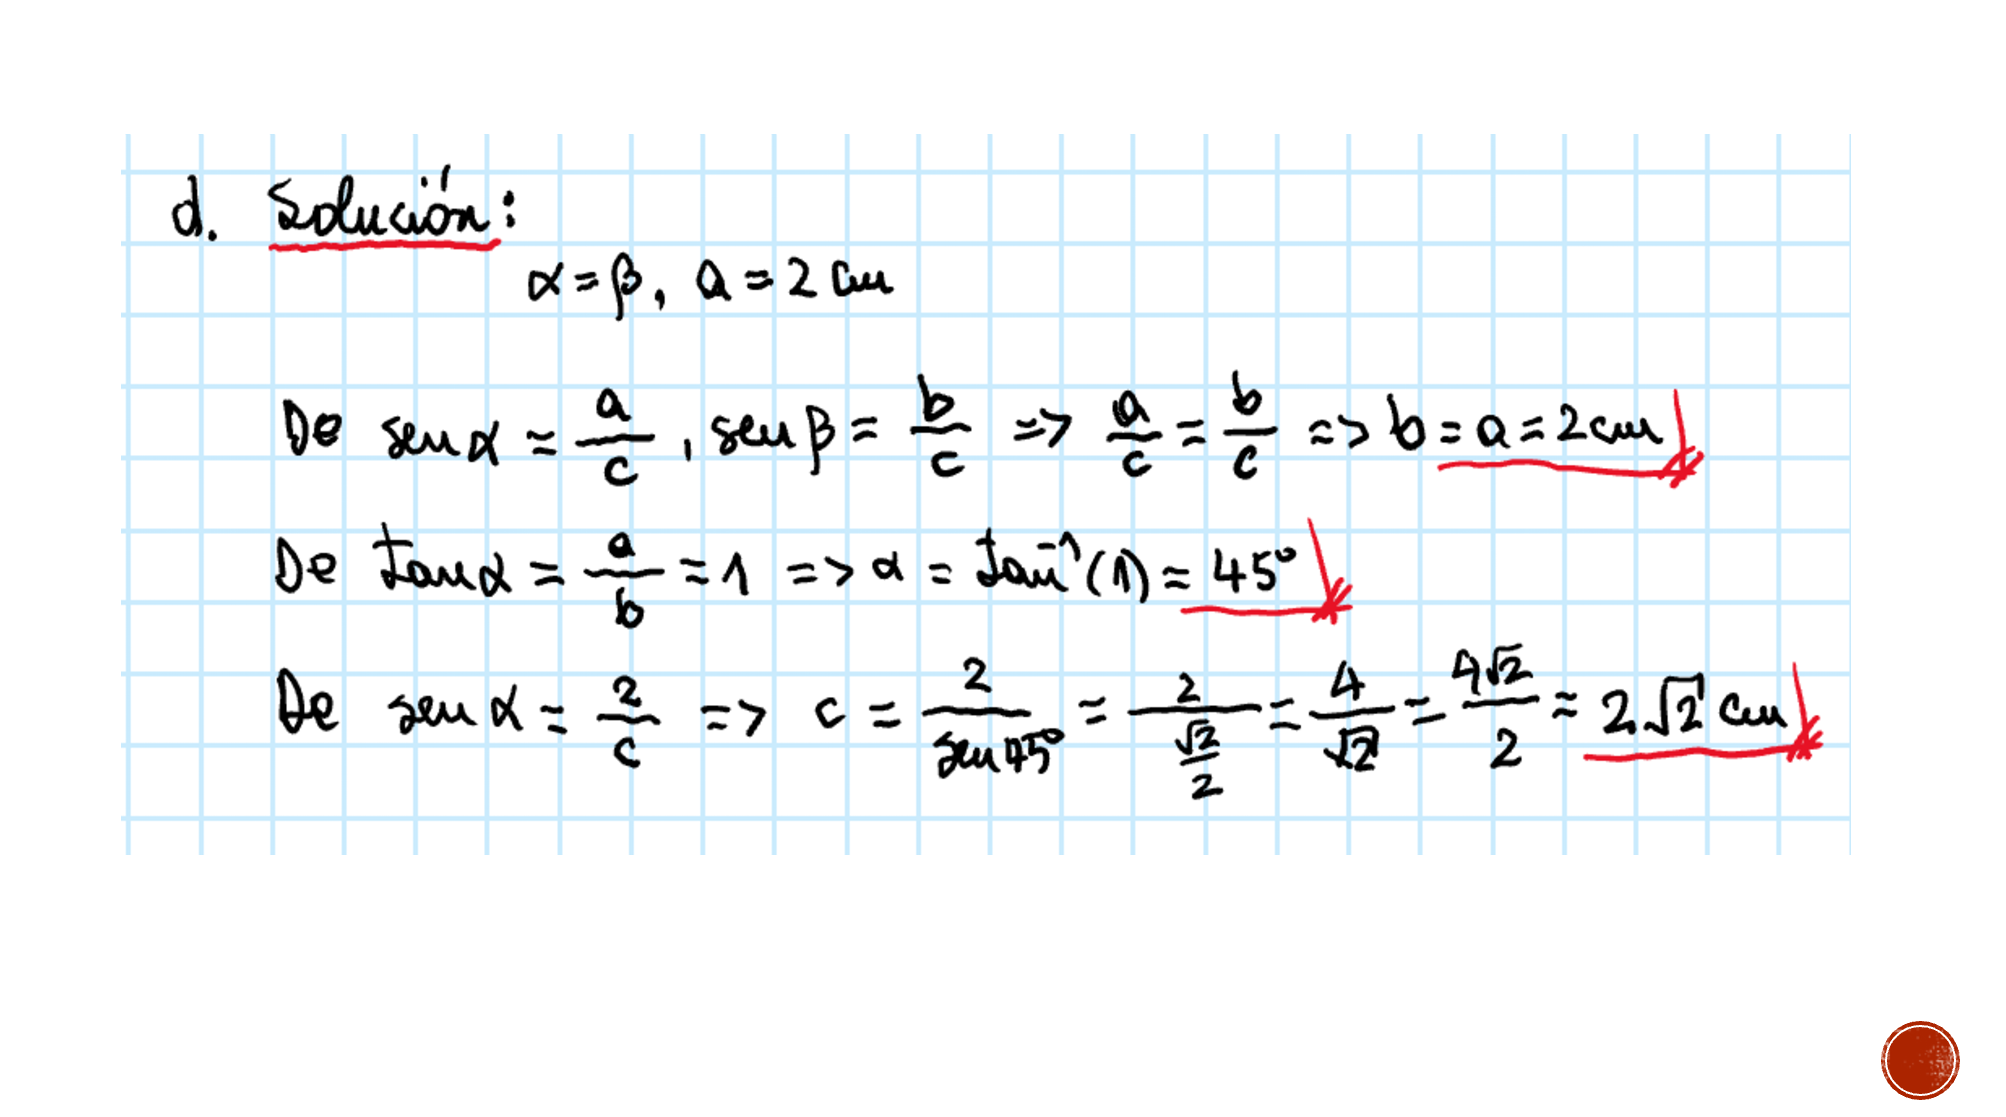 d. Solución:
α = β, a = 2 cm
De sen α = a/c, sen β = b/c => a/c = b/c => b = a = 2 cm
De tan α = a/b = 1 => α = tan⁻¹(1) = 45°
De sen α = 2/c => c = 2/sen 45° = 2/(√2/2) = 4/√2 = 4√2/2 = 2√2 cm